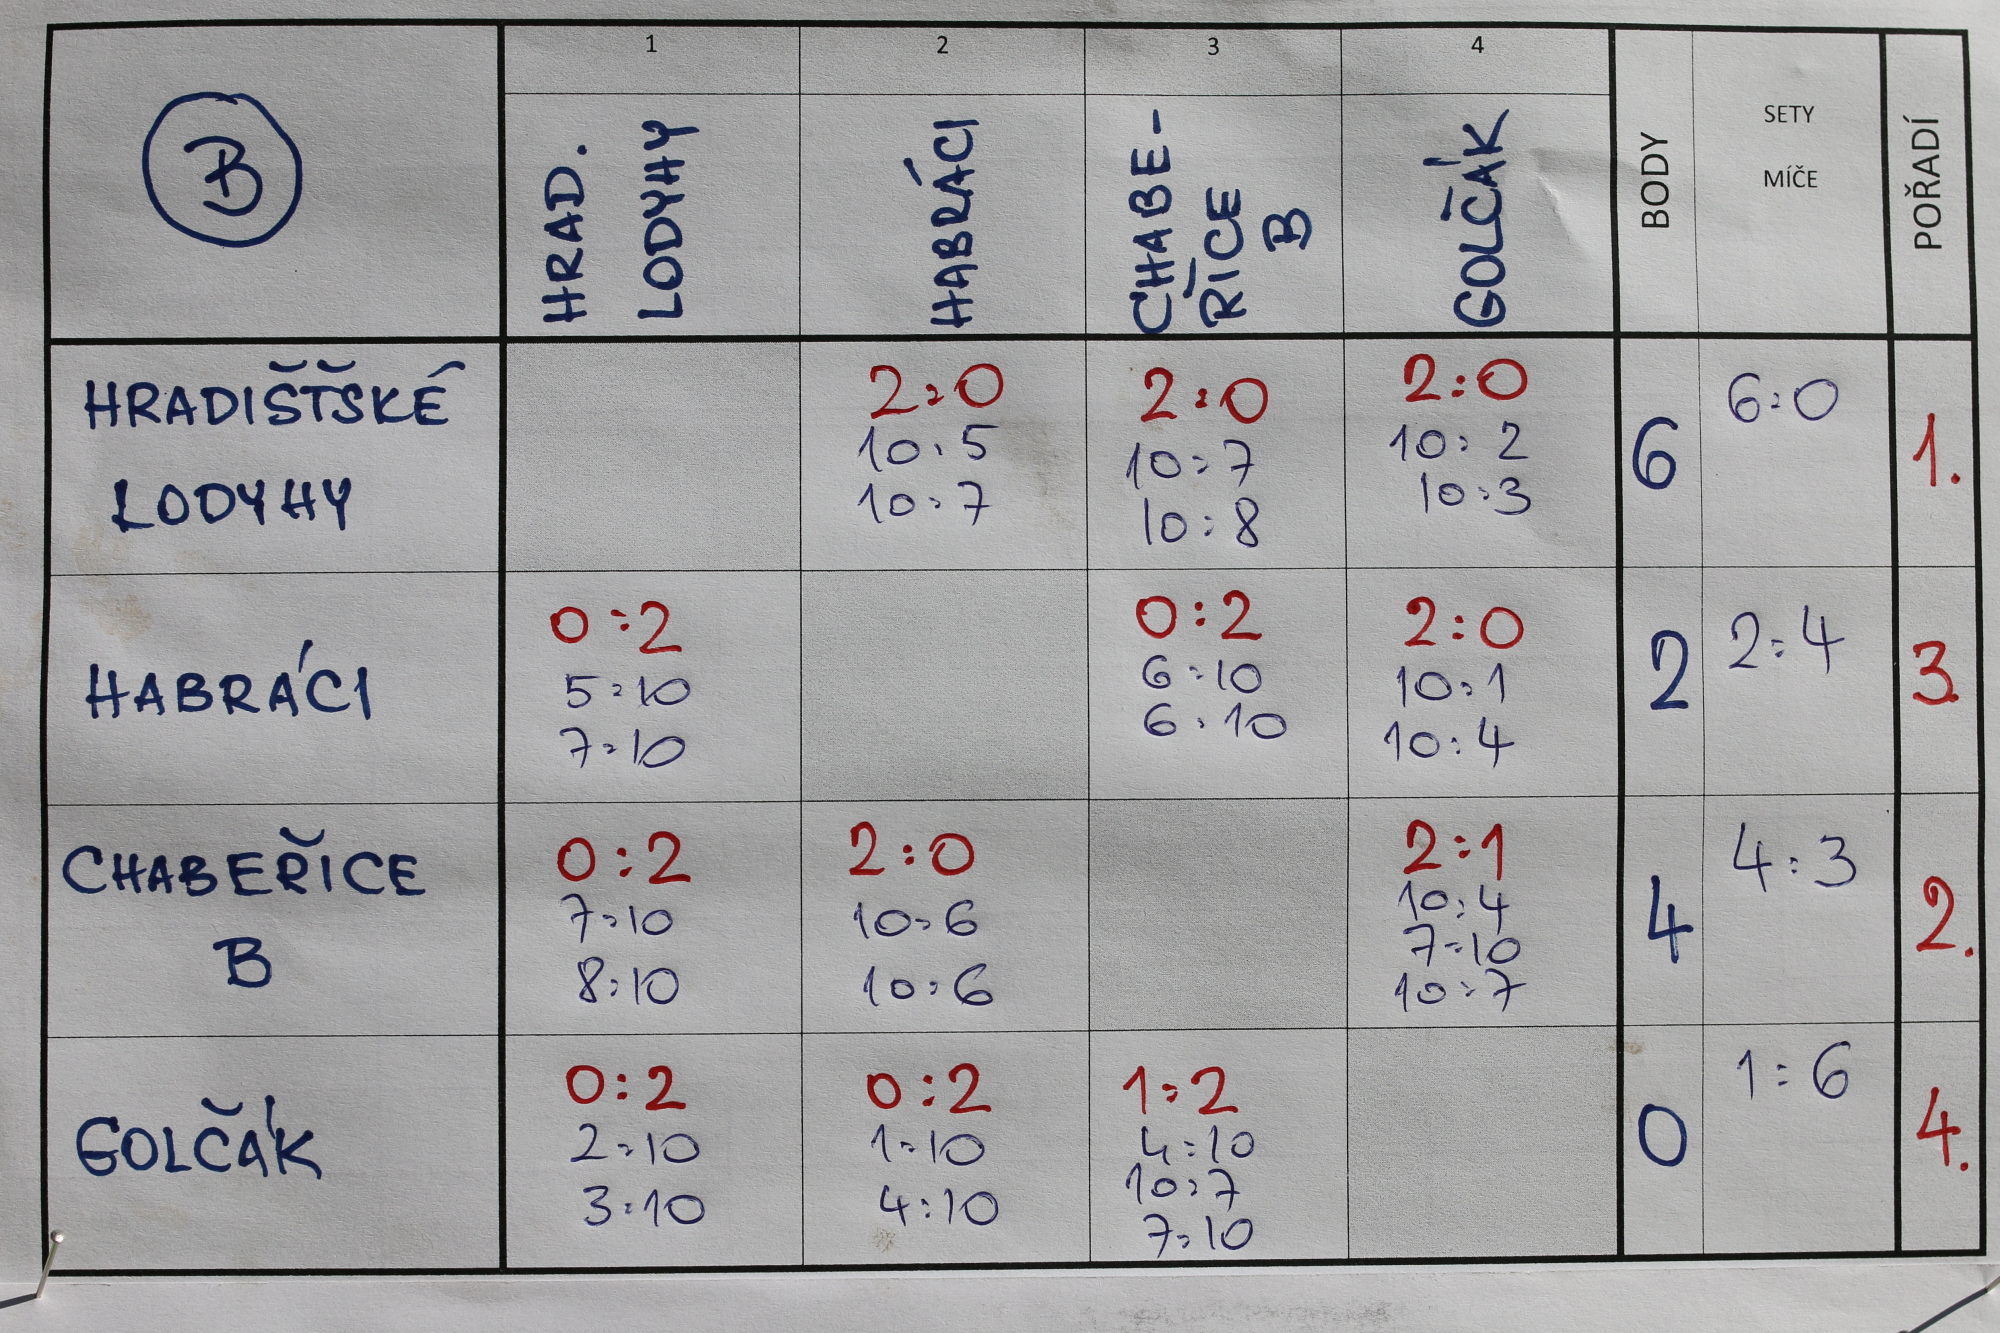 B
1
2
3
4
HRAD.
LODYHY
HABRÁCI
CHABE-
ŘICE
B
GOLČÁK
BODY
SETY
MÍČE
POŘADÍ
HRADIŠŤSKÉ
LODYHY
2:0
10:5
10:7
2:0
10:7
10:8
2:0
10:2
10:3
6
6:0
1.
HABRÁCI
0:2
5:10
7:10
0:2
6:10
6:10
2:0
10:1
10:4
2
2:4
3.
CHABEŘICE
B
0:2
7:10
8:10
2:0
10:6
10:6
2:1
10:4
7:10
10:7
4
4:3
2.
GOLČÁK
0:2
2:10
3:10
0:2
1:10
4:10
1:2
4:10
10:7
7:10
0
1:6
4.